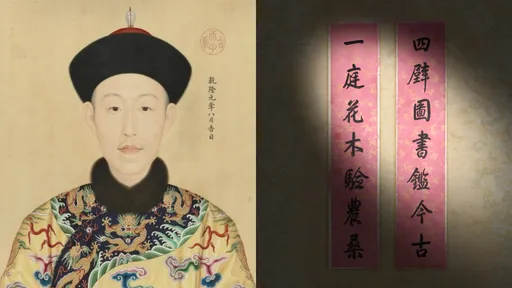 乾隆元年八月吉日
四壁圖書鑑今古
一庭花木驗農桑